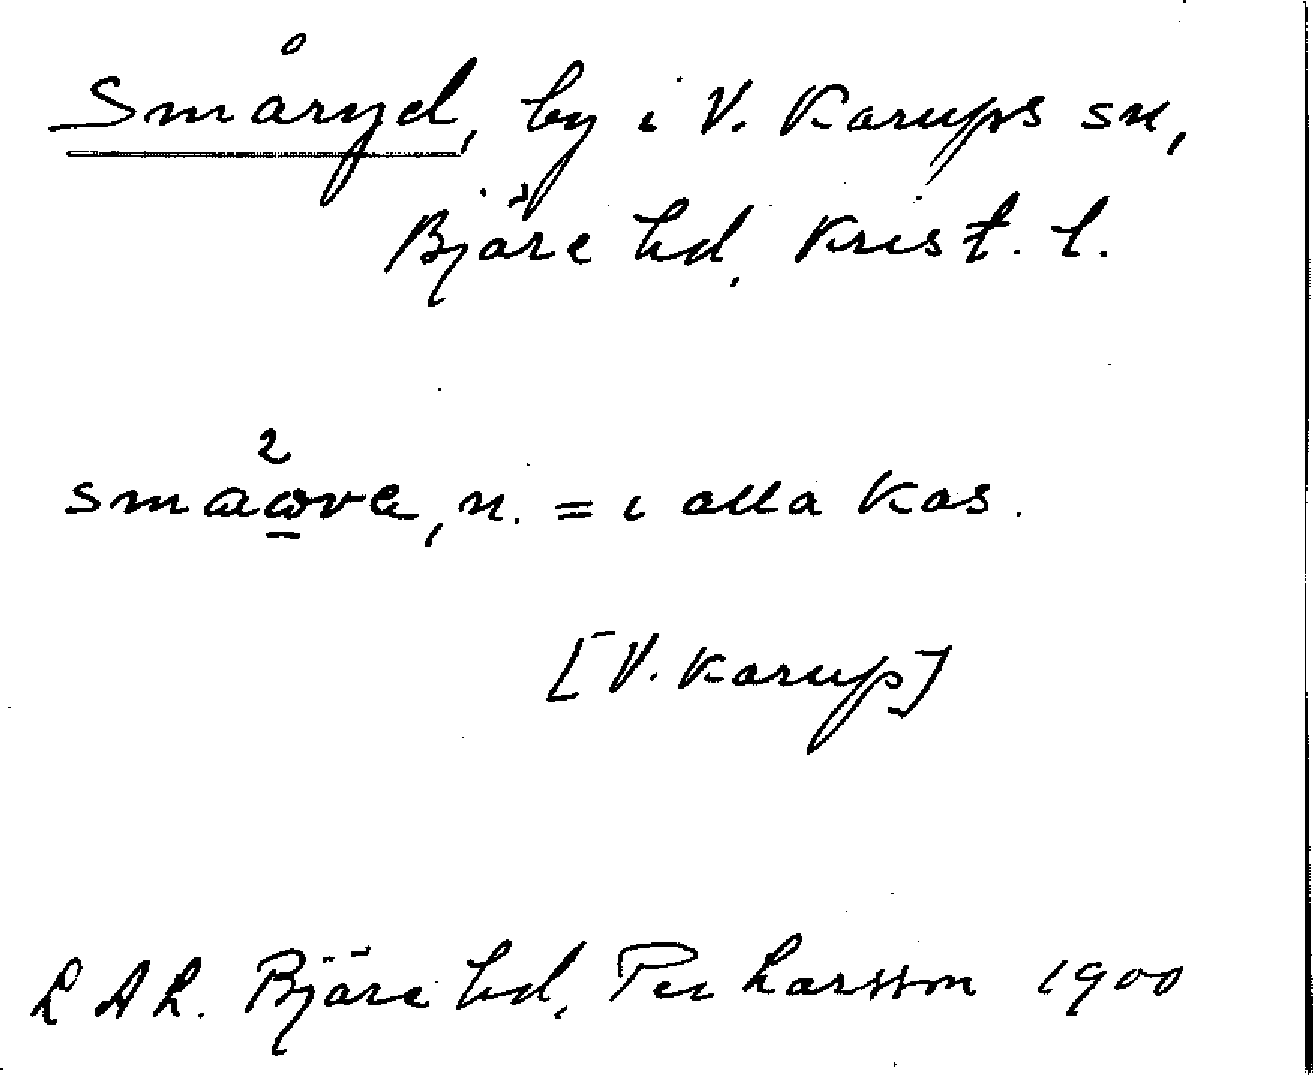 Småryd, by i V. Karups sn,
Bjäre hd, Krist. l.
2
n. = i alla kas.
[V. Karup]
LAL. Bjäre hd, Per Larsson 1900